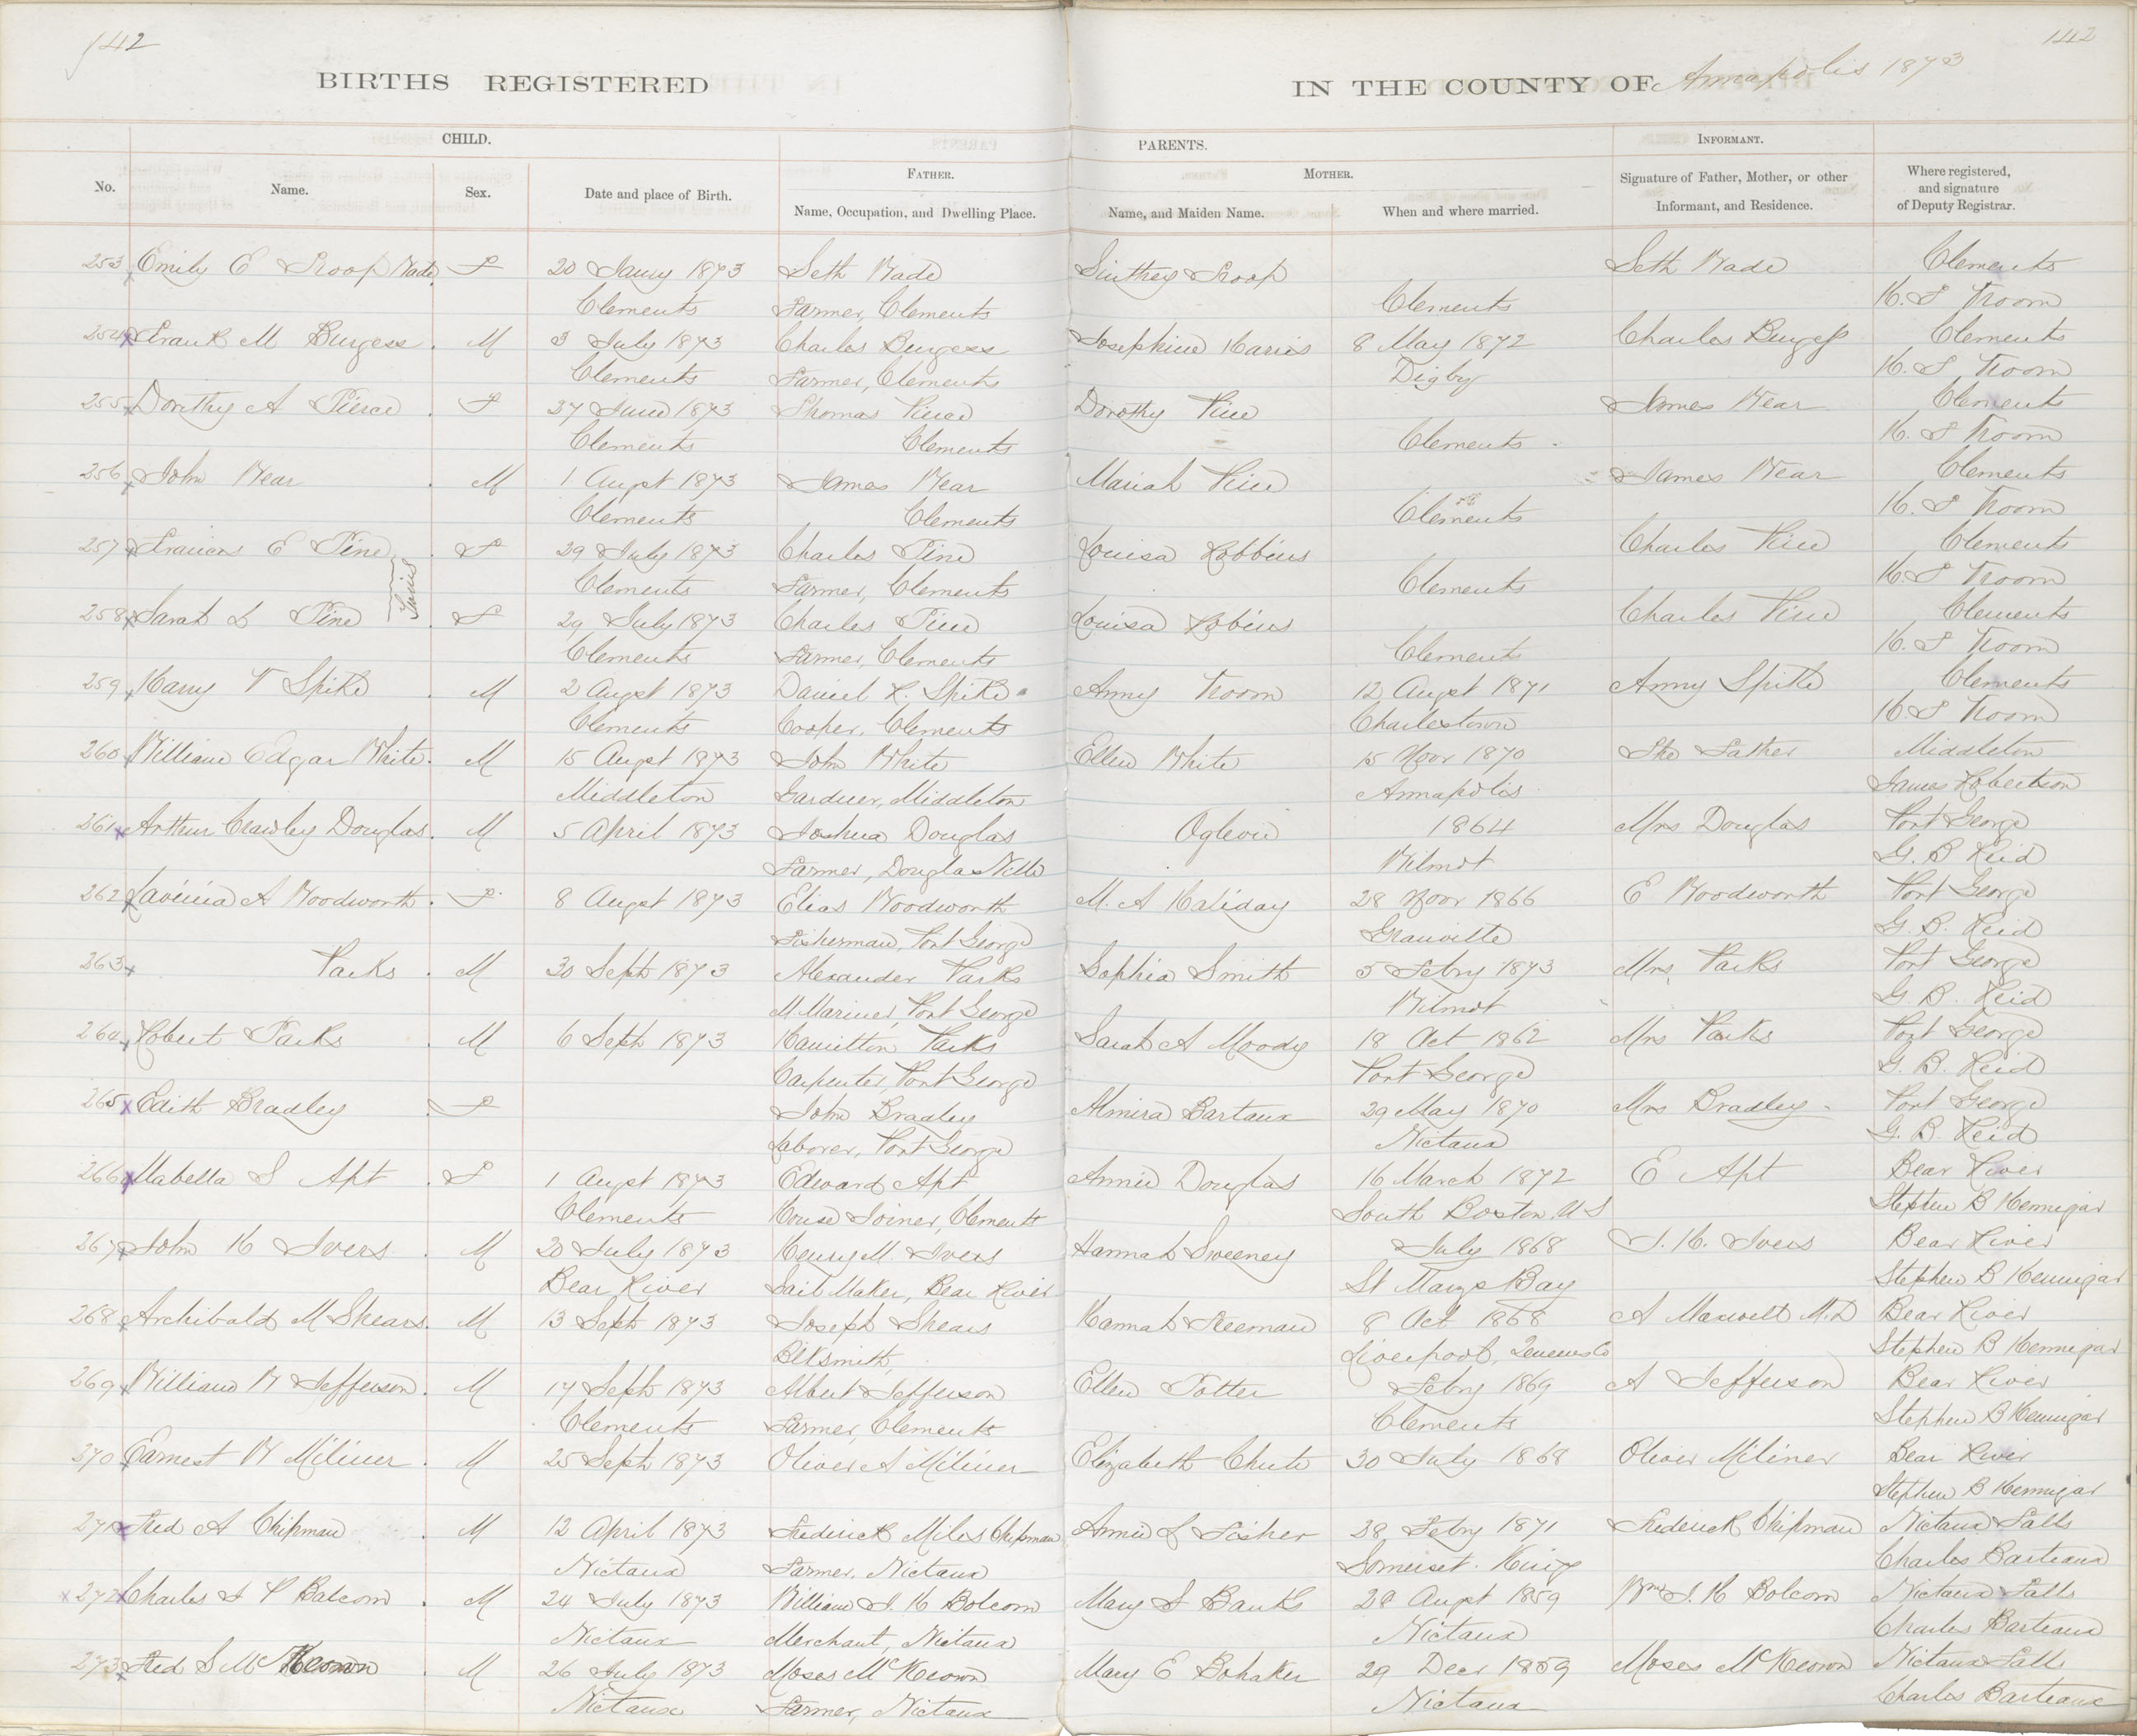 142
142
BIRTHS REGISTERED
IN THE COUNTY OF Annapolis 1873
CHILD.
PARENTS.
INFORMANT.
No.
Name.
Sex.
Date and place of Birth.
FATHER.
Name, Occupation, and Dwelling Place.
MOTHER.
Name, and Maiden Name.
When and where married.
Signature of Father, Mother, or other
Informant, and Residence.
Where registered,
and signature
of Deputy Registrar.
253 Emily E Troop Wade F 20 Jany 1873 Seth Wade Sinthey Troop Seth Wade Clements
Clements Farmer, Clements Clements
254 Frank M Burgess M 3 July 1873 Charles Burgess Josephine Harris 8 May 1872 Charles Burgess Clements
Clements Farmer, Clements Digby
255 Dorithy A Pierce F 27 June 1873 Thomas Pierce Dorothy Pine James Wear Clements
Clements Clements Clements
256 John Wear M 1 Augst 1873 James Wear Mariah Pine James Wear Clements
Clements Clements Clements
257 Frances E Pine F 29 July 1873 Charles Pine Louisa Robbins Charles Pine Clements
Twins
Clements Farmer, Clements Clements
258 Sarah L Pine F 29 July 1873 Charles Pine Louisa Robins Charles Pine Clements
Clements Farmer, Clements Clements
259 Harry T Spike M 2 Augst 1873 Daniel R. Spike Anny Troom 12 Augst 1871 Anny Spike Clements
Clements Cooper, Clements Charlestown
260 William Edgar White M 15 Augst 1873 John White Ellen White 15 Novr 1870 The Father Middleton
Middleton Gardner, Middleton Annapolis James Robertson
261 Arthur Crawley Douglas M 5 April 1873 Joshua Douglas Oglevie 1864 Mrs Douglas Port George
Farmer, Douglas Ville Wilmot G. B Reid
262 Lavinia A Woodworth F 8 Augst 1873 Elias Woodworth M. A Haliday 28 Novr 1866 E Woodworth Port George
Fisherman, Port George Granville G. B. Reid
263 Parks M 30 Sept 1873 Alexander Parks Sophia Smith 5 Febry 1873 Mrs Parks Port George
M Mariner, Port George Wilmot G. B. Reid
264 Robert Parks M 6 Sept 1873 Hamilton Parks Sarah A Moody 18 Oct 1862 Mrs Parks Port George
Carpenter, Port George Port George G. B. Reid
265 Edith Bradley F John Bradley Almira Bartaux 29 May 1870 Mrs Bradley Port George
Laborer, Port George Nictaux G. B. Reid
266 Mabella S Apt F 1 Augst 1873 Edward Apt Annie Douglas 16 March 1872 E Apt Bear River
Clements House Joiner, Clements South Boston U S Stephen B Hennigar
267 John H Ivers M 20 July 1873 Henry M. Ivers Hannah Sweeney July 1868 Bear River
Bear River Sail Maker, Bear River St Marys Bay Stephen B Hennigar
268 Archibald M Shears M 13 Sept 1873 Joseph Shears Hannah Freeman 8 Oct 1868 A Maxwell M.D Bear River
Blksmith, Liverpool, Queens Co Stephen B Hennigar
269 William W Jefferson M 17 Sept 1873 Albert Jefferson Ellen Potter Febry 1869 A Jefferson Bear River
Clements Farmer, Clements Clements Stephen B Hennigar
270 Earnest W Miliner M 25 Sept 1873 Oliver A Miliner Elizabeth Chute 30 July 1868 Oliver Miliner Bear River
Stephen B Hennigar
271 Fred A Chipman M 12 April 1873 Frederick Miles Chipman Annie L Fisher 28 Febry 1871 Frederick Chipman Nictaux Falls
Nictaux Farmer, Nictaux Somerset. Kings Charles Barteaux
272 Charles I P Balcom M 24 July 1873 William I. H Bolcom Mary S Banks 28 Augst 1859 Wm I. H Bolcom Nictaux Falls
Nictaux Merchant, Nictaux Nictaux Charles Barteaux
273 Fred S McKeown M 26 July 1873 Moses McKeown Mary E Bohaker 29 Decr 1859 Moses McKeown Nictaux Falls
Nictaux Farmer, Nictaux Nictaux Charles Barteaux